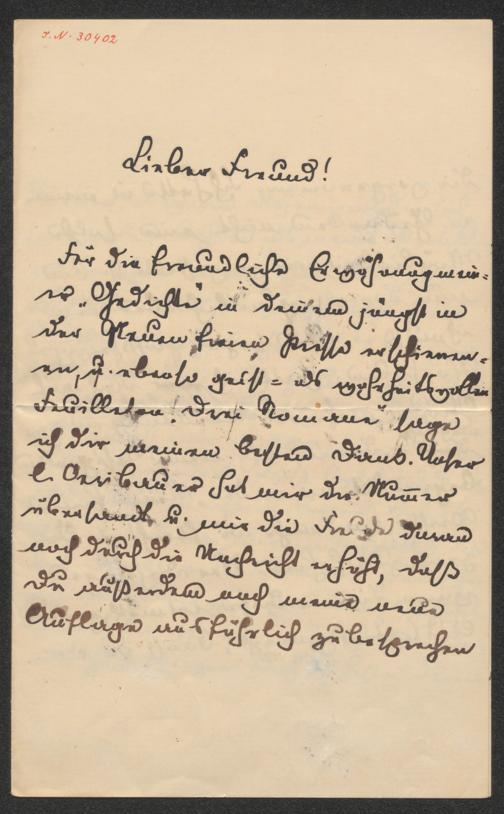 I.N. 30402
Lieber Freund!
Für die freundliche Erwähnung mein=
er „Gedichte" in deinem jüngst in
der Neuen freien Presse erschienen=
en, u. ebenso geist= als wahrheitsvollen
Feuilleton „Drei Romane" sage
ich dir meinen besten Dank. Unser
l. hat mir die Nummer
übersandt u. mir die Freude daran
noch durch die Nachricht erhöht, daß
du außerdem noch meine neue
Auflage ausführlich zu besprechen